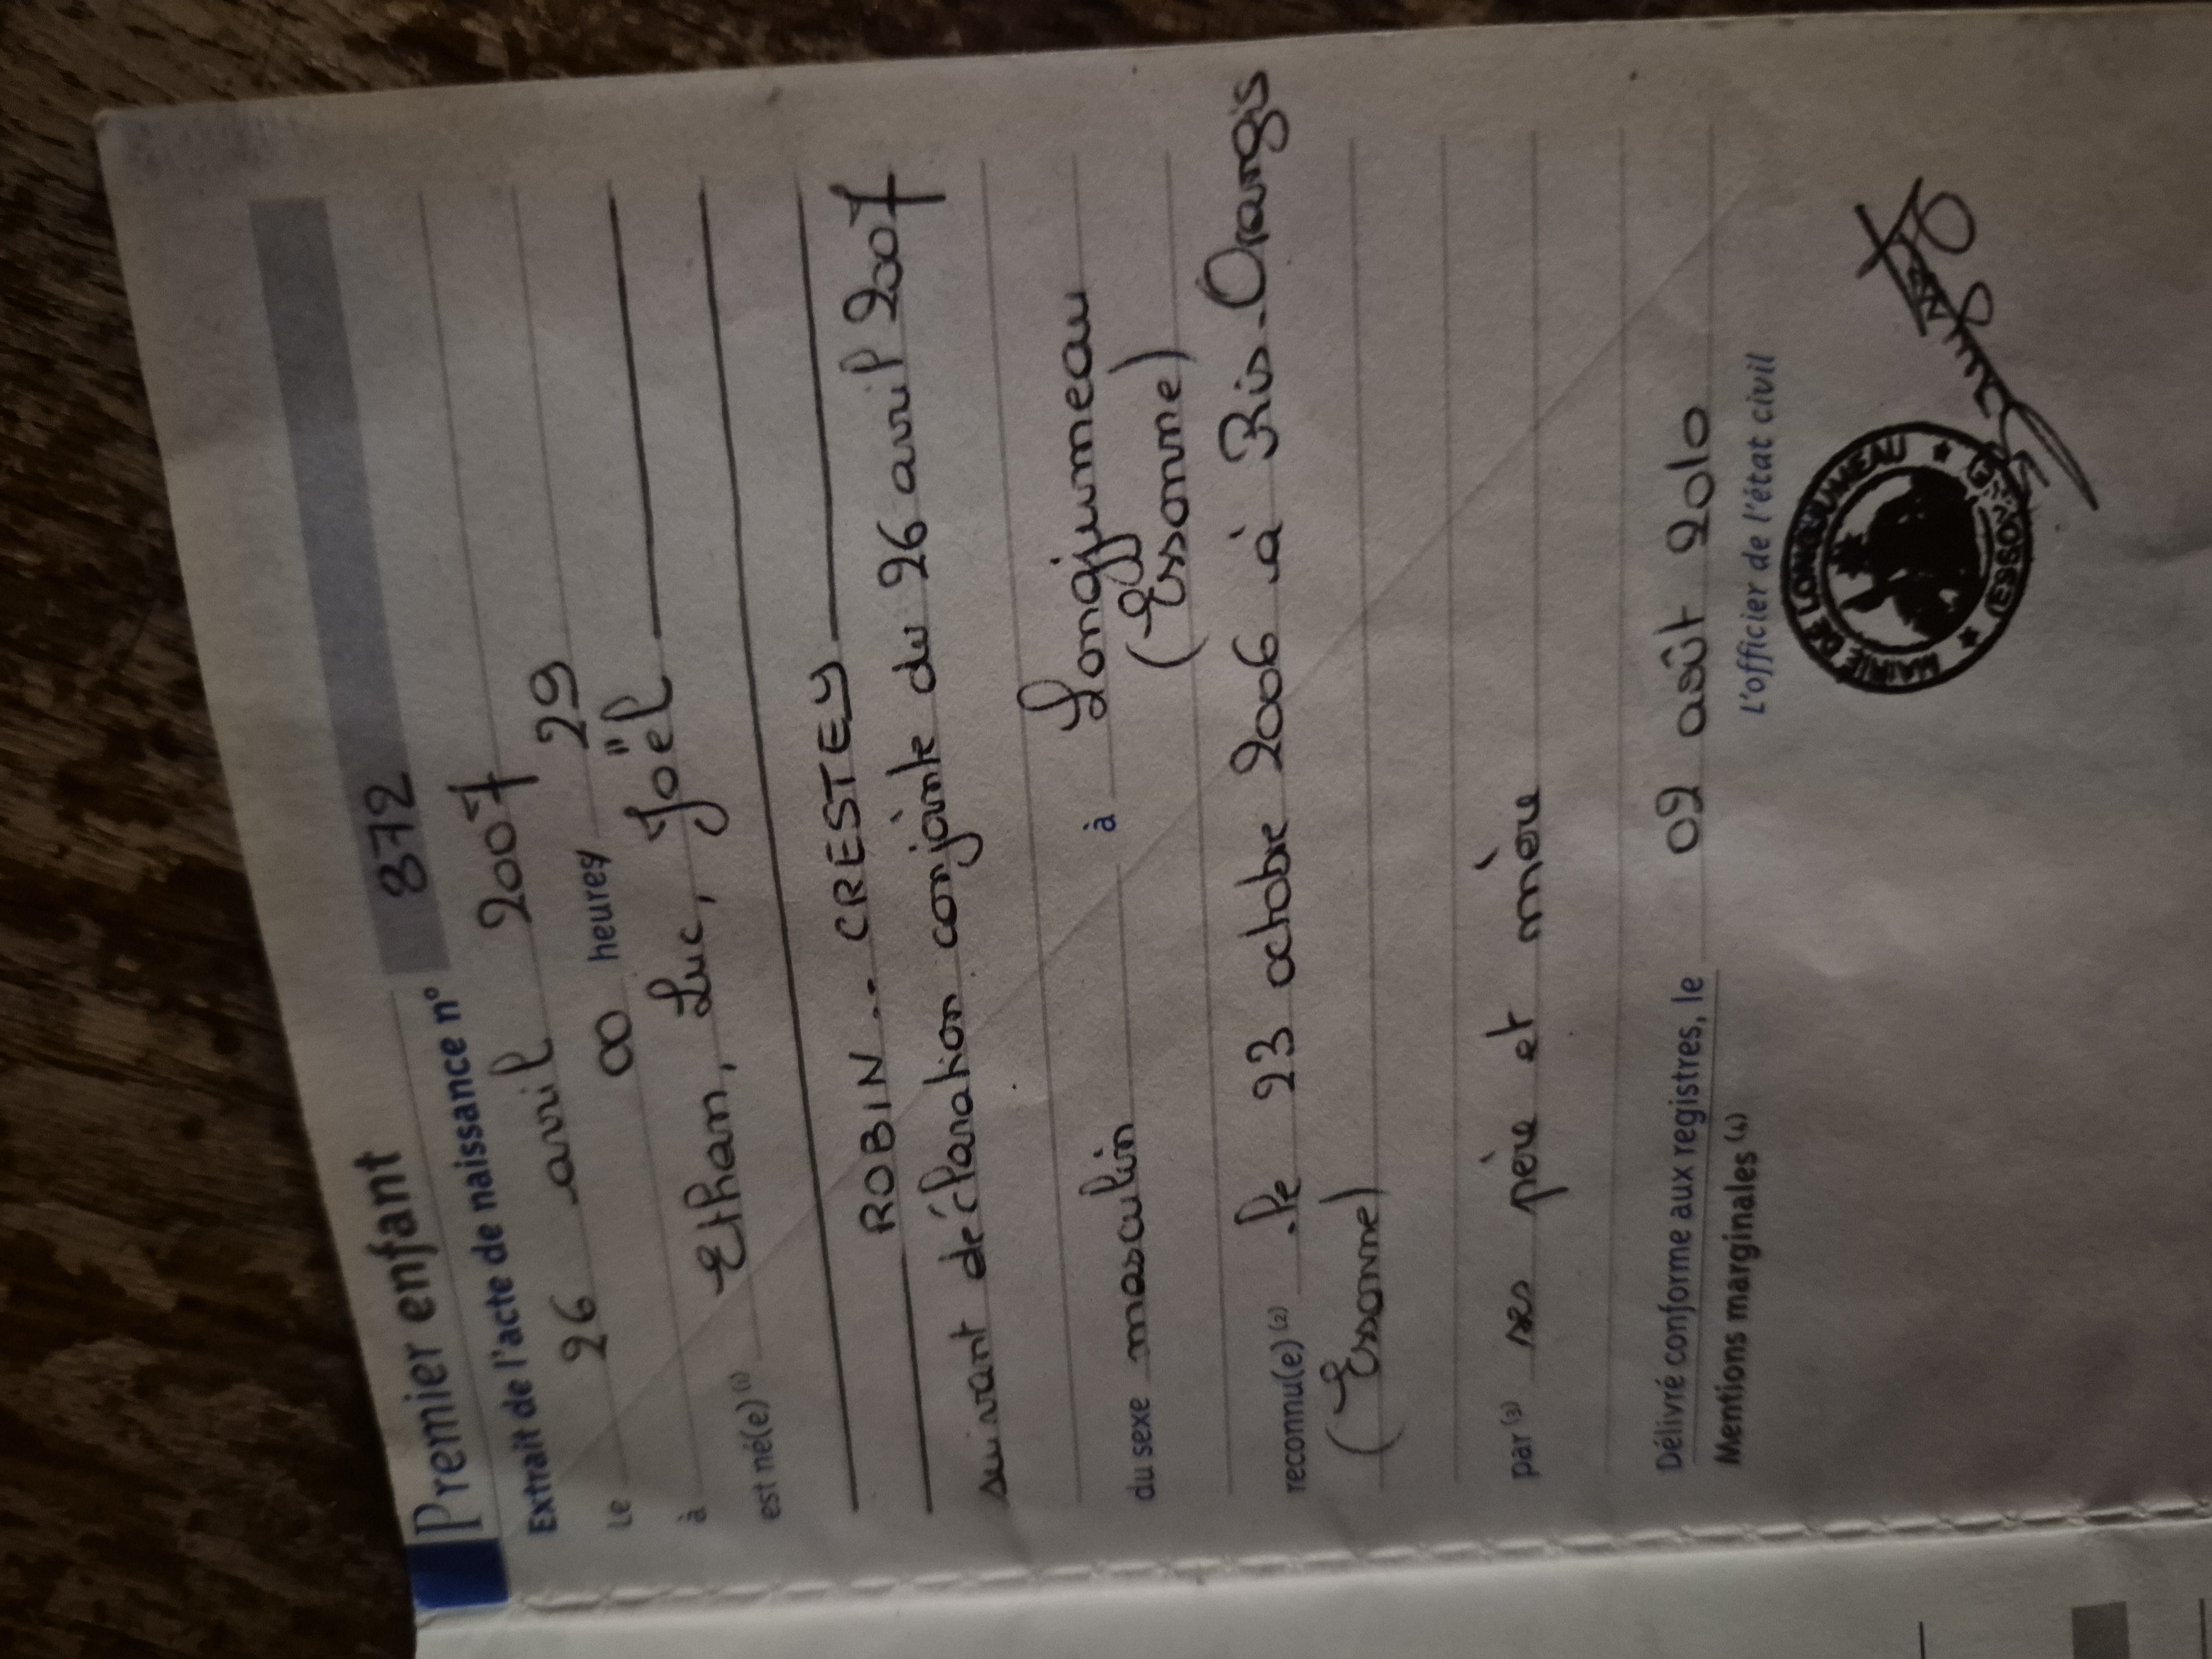 Premier enfant
Extrait de l'acte de naissance n° 872
Le 26 avril 2007
à 00 heures 29
est né(e) (1) Ethan, Luc, Joël
ROBIN -- CRESTEY
suivant déclaration conjointe du 26 avril 2007
du sexe masculin à Longjumeau
(Essonne)
reconnu(e) (2) le 23 octobre 2006 à Ris-Orangis
(Essonne)
par (3) ses père et mère
Délivré conforme aux registres, le 02 août 2010
Mentions marginales (4) L'officier de l'état civil
MAIRIE DE LONGJUMEAU
(ESSONNE)